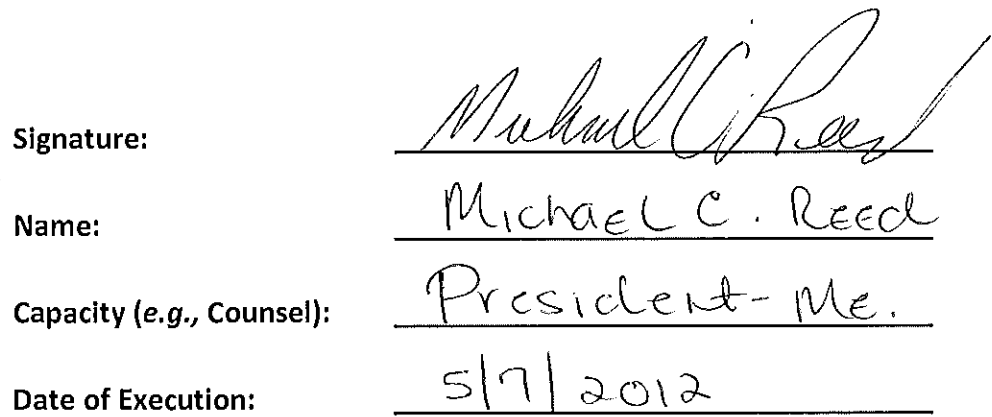 Signature: Michael C. Reed
Name: Michael C. Reed
Capacity (e.g., Counsel): President - Me.
Date of Execution: 5/7/2012